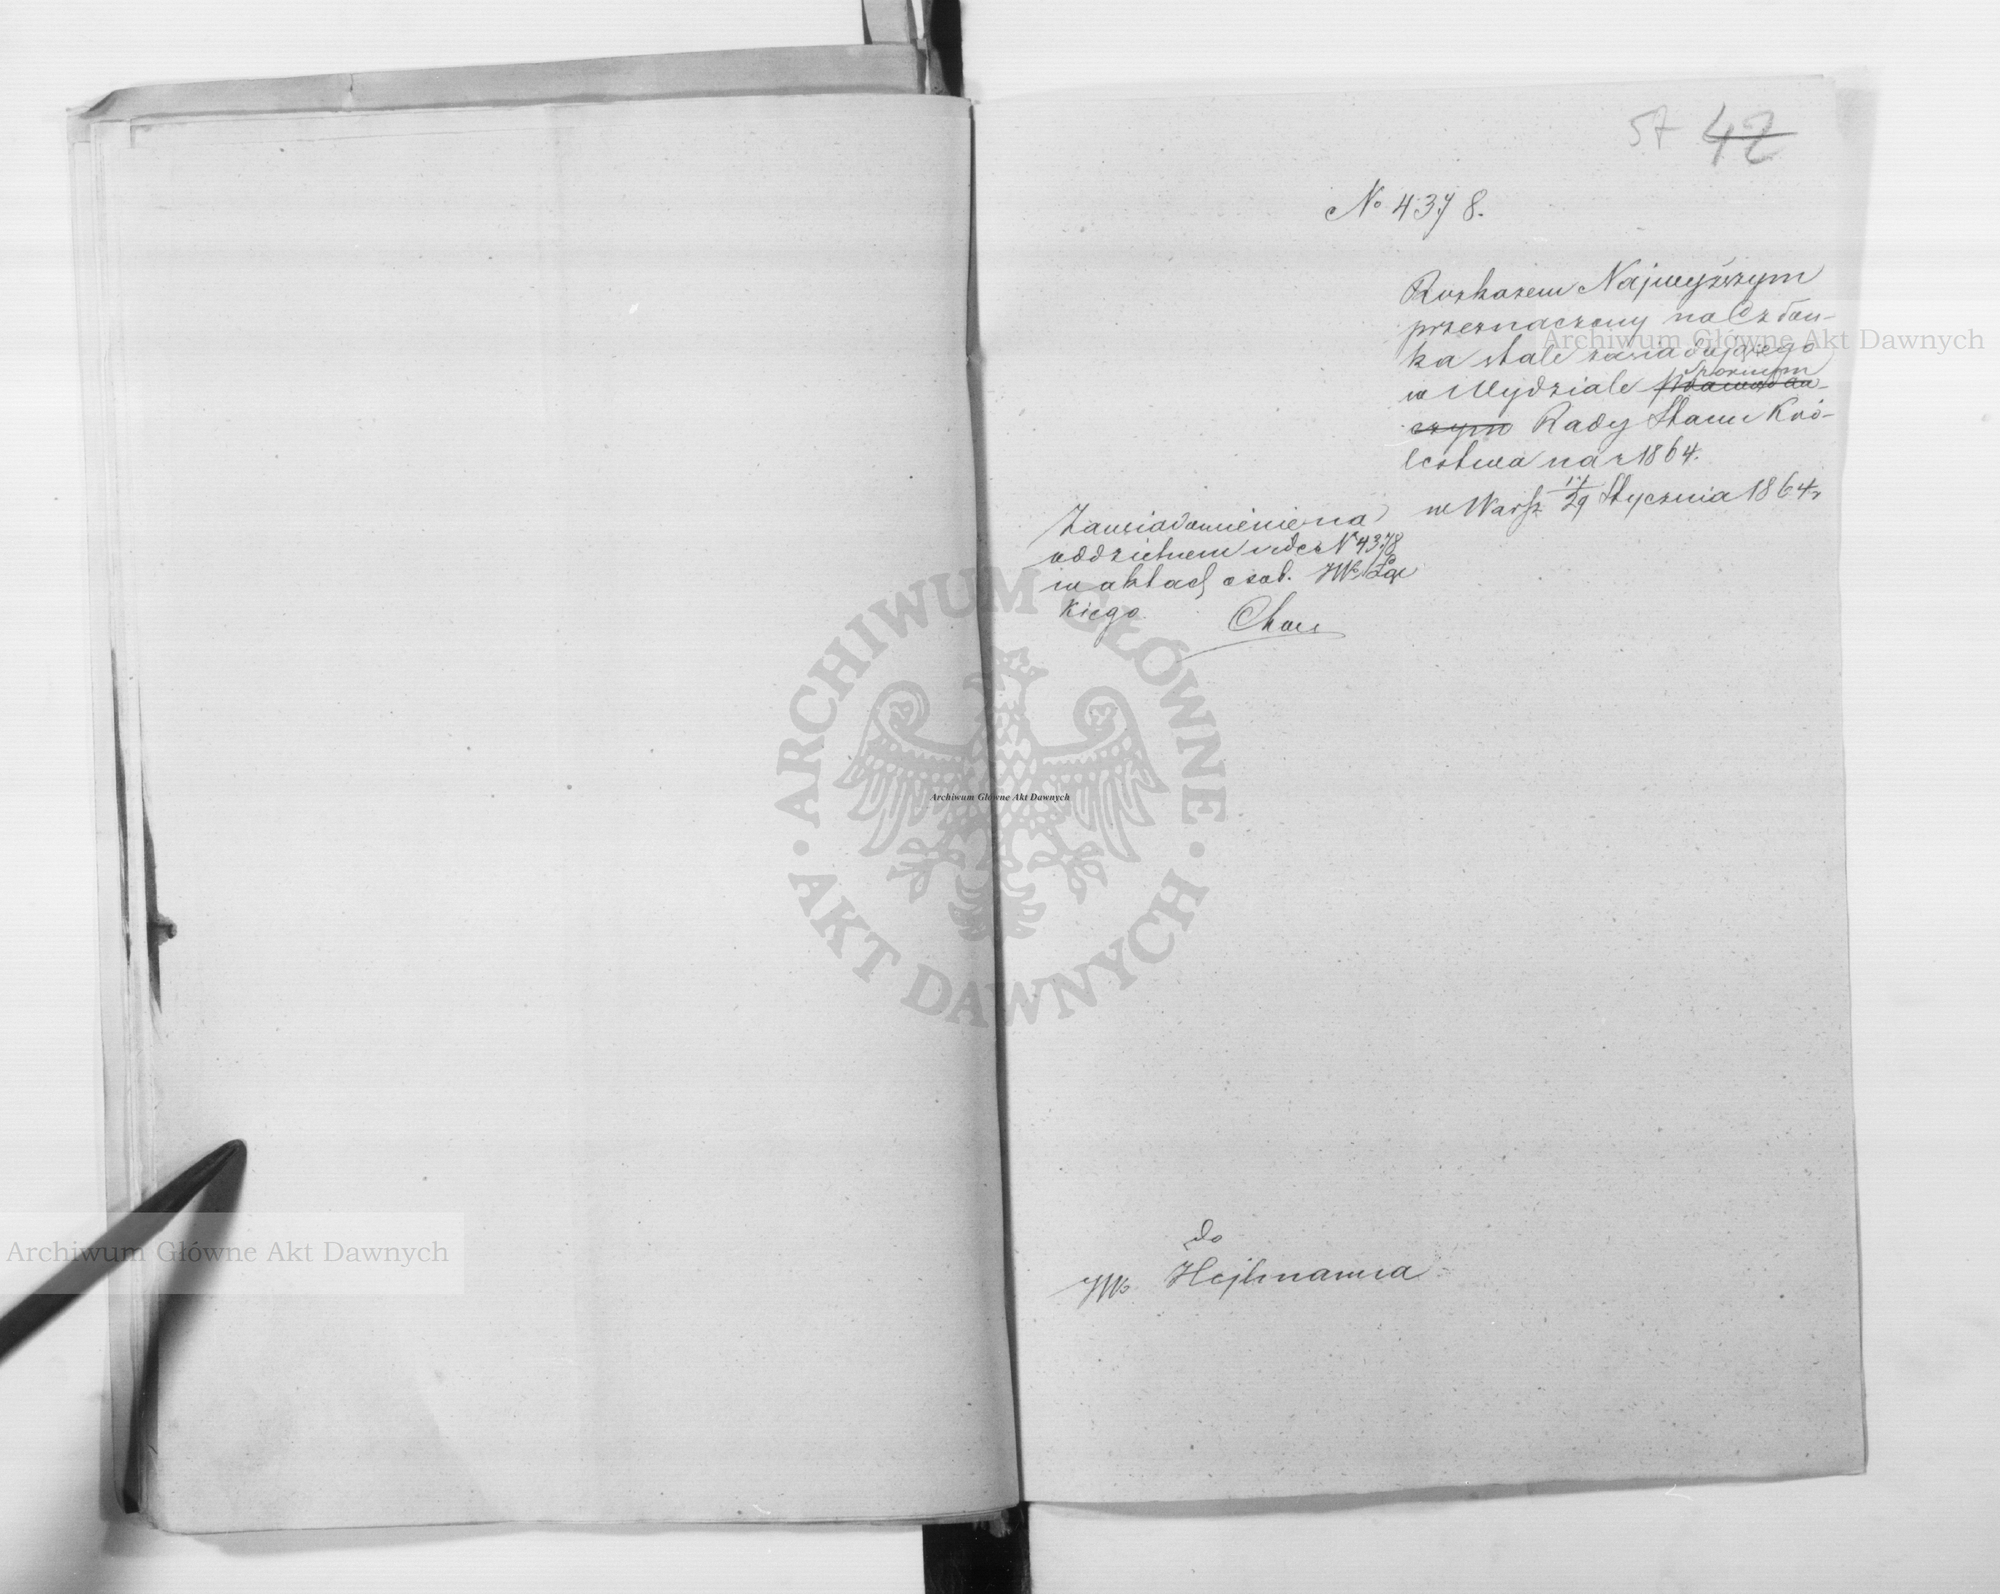 57 42
No 4378.
Rozkazem Najwyższym
przeznaczony na Człon-
ka stale zasiadającego
w Wydziale spornym
Rady Stanu Kró-
lestwa na r 1864.
w Warsz 17/29 Stycznia 1864 r
Zawiadomienie na
oddzielnem N 4378
w aktach osob. JW
kiego
do
JW. Hejlmanna
Archiwum Główne Akt Dawnych
ARCHIWUM GŁÓWNE
AKT DAWNYCH
Archiwum Główne Akt Dawnych
Archiwum Główne Akt Dawnych